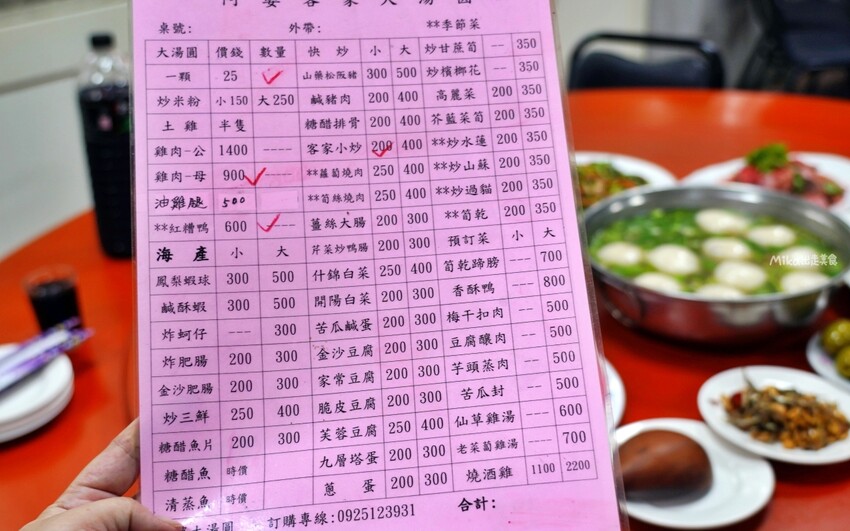 阿婆客家大湯圓
桌號: 外帶: **季節菜
大湯圓 價錢 數量 快炒 小 大 炒甘蔗筍 -- 350
一顆 25 山藥松阪豬 300 500 炒檳榔花 -- 350
炒米粉 小150 大250 鹹豬肉 200 400 高麗菜 200 350
土雞 半隻 糖醋排骨 200 400 芥藍菜筍 200 350
雞肉-公 1400 ---- 客家小炒 200 400 **炒水蓮 200 350
雞肉-母 900 ---- **蘿蔔燒肉 250 400 **炒山蘇 200 350
油雞腿 500 **筍絲燒肉 250 400 **炒過貓 200 350
**紅糟鴨 600 ---- 薑絲大腸 200 300 **筍乾 200 350
海產 小 大 芹菜炒鴨腸 200 300 預訂菜 小 大
鳳梨蝦球 300 500 什錦白菜 250 400 筍乾蹄膀 -- 700
鹹酥蝦 300 500 開陽白菜 200 300 香酥鴨 --- 800
炸蚵仔 --- 300 苦瓜鹹蛋 200 300 梅干扣肉 -- 500
炸肥腸 200 300 金沙豆腐 200 300 豆腐釀肉 -- 500
金沙肥腸 200 300 家常豆腐 200 300 芋頭蒸肉 -- 500
炒三鮮 250 400 脆皮豆腐 200 300 苦瓜封 -- 500
糖醋魚片 200 300 芙蓉豆腐 250 400 仙草雞湯 ---- 600
糖醋魚 時價 九層塔蛋 200 300 老菜蔔雞湯 ---- 700
清蒸魚 時價 蔥蛋 200 300 燒酒雞 1100 2200
大湯圓 訂購專線:0925123931 合計: